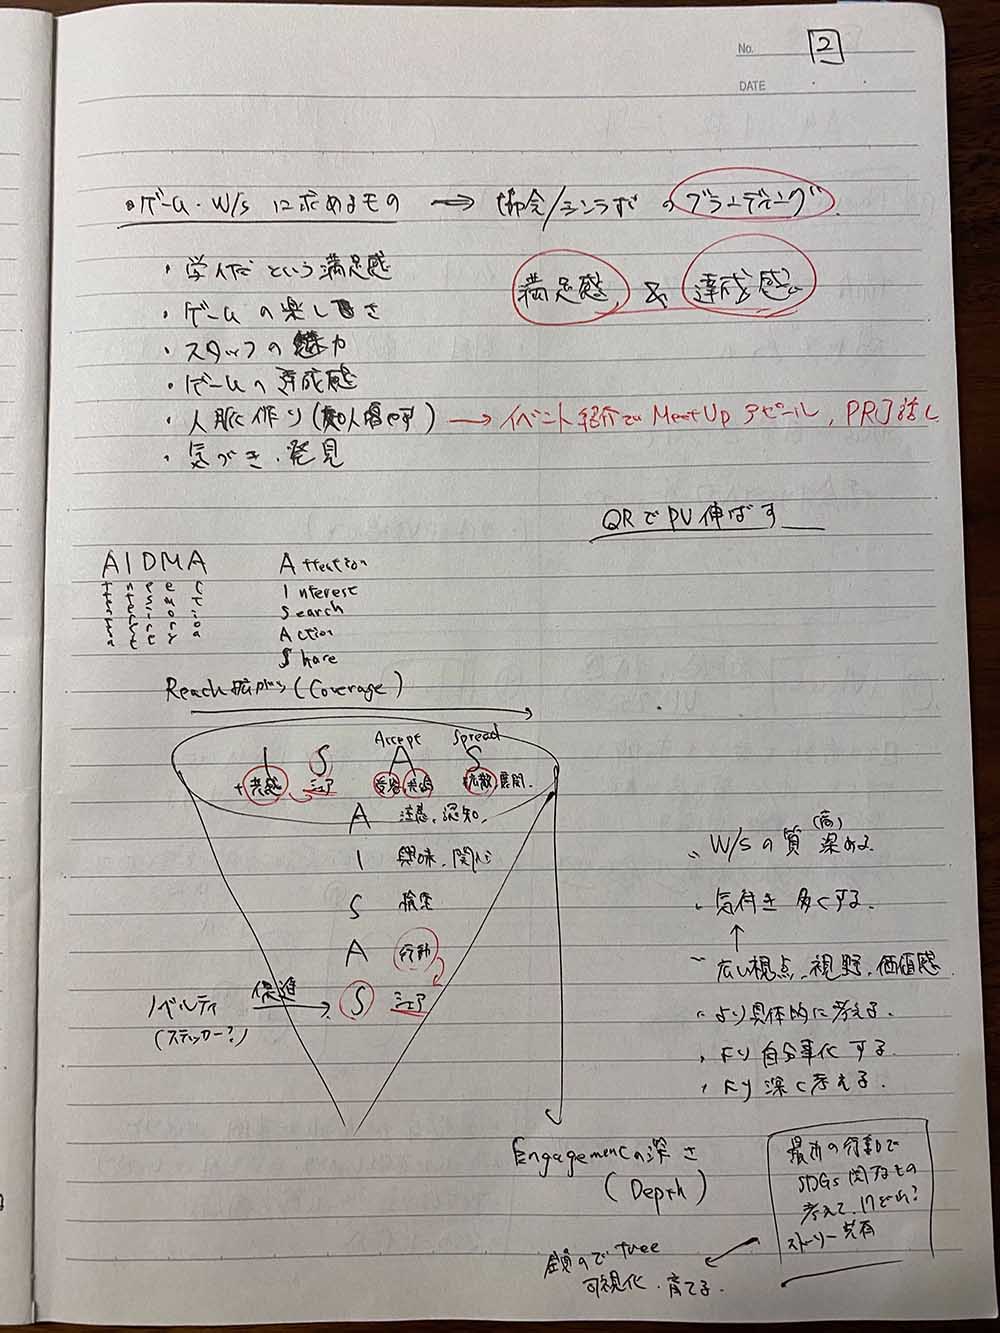 No. 2
DATE
ゲーム・W/S に求めるもの → 協会/シンラボ の ブランディング
・学んだという満足感
満足感 & 達成感
・ゲームの楽しさ
・スタッフの魅力
・ゲームの達成感
・人脈作り(知人増やす) → イベント紹介で MeetUp アピール, PR
・気づき・発見
QRでPV伸ばす
AIDMA
Attention
Interest
Search
Action
Share
Reach拡がり(Coverage)
Accept Spread
I S A S
+共感 シェア 受容 共鳴 拡散 展開.
A 注意, 認知,
I 興味・関心
S 検索
A 行動
ノベルティ 促進 → S シェア
(ステッカー?)
W/Sの質 (高) 深める.
気付き 多くする.
↑
広い視点, 視野, 価値感
より具体的に考える.
より自分事化する.
より深く考える.
Engagementの深さ
(Depth)
SDGs
考えて
ストーリー共有
tree
可視化・育てる.